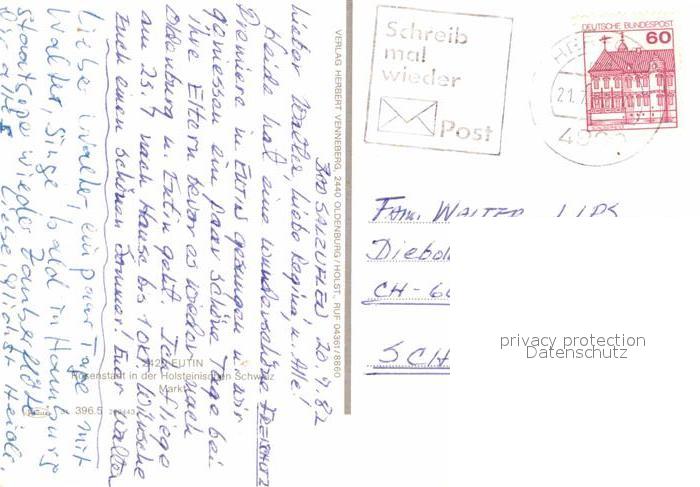 Schreib
mal
wieder
Post
DEUTSCHE BUNDESPOST
60
21.7
Fam. WALTER
Diebol
CH-60
SCH
privacy protection
Datenschutz
VERLAG HERBERT VENNEBERG, 2440 OLDENBURG/HOLST., RUF 04361/8860
BAD SALZUFLEN, 20.7.82
Lieber Walter, liebe Regina, u. Alle!
Heide hat eine wunderschöne FREISCHÜTZ
Premiere in EUTIN gesungen u. wir
geniessen ein paar schöne Tage bei
ihre Eltern bevor es wieder nach
Oldenburg u. Eutin geht. Ich fliege
am 25.7 nach Hause bis 1 Okt. Wünsche
Euch einen schönen Sommer! Euer Walter
Liebe Walter, ein paar Tage mit
Walter, singe bald in Hamburg
Staatsoper wieder Zauberflöte
alles Liebe, Heide.
2420 EUTIN
Rosenstadt in der Holsteinischen Schweiz
Markt
396.5